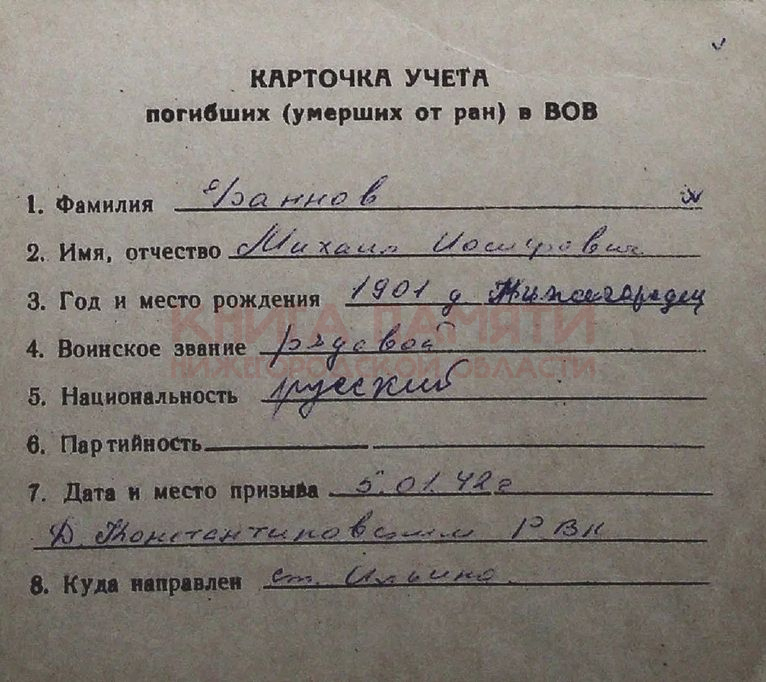 КАРТОЧКА УЧЕТА
погибших (умерших от ран) в ВОВ
1. Фамилия
2. Имя, отчество Михаил Иосифович
3. Год и место рождения 1901 д. Нижегородец
КНИГА ПАМЯТИ
4. Воинское звание рядовой
НИЖЕГОРОДСКОЙ ОБЛАСТИ
5. Национальность русский
6. Партийность
7. Дата и место призыва 5.01.42 г
Д. Константиновским РВК
8. Куда направлен ст. Ильино